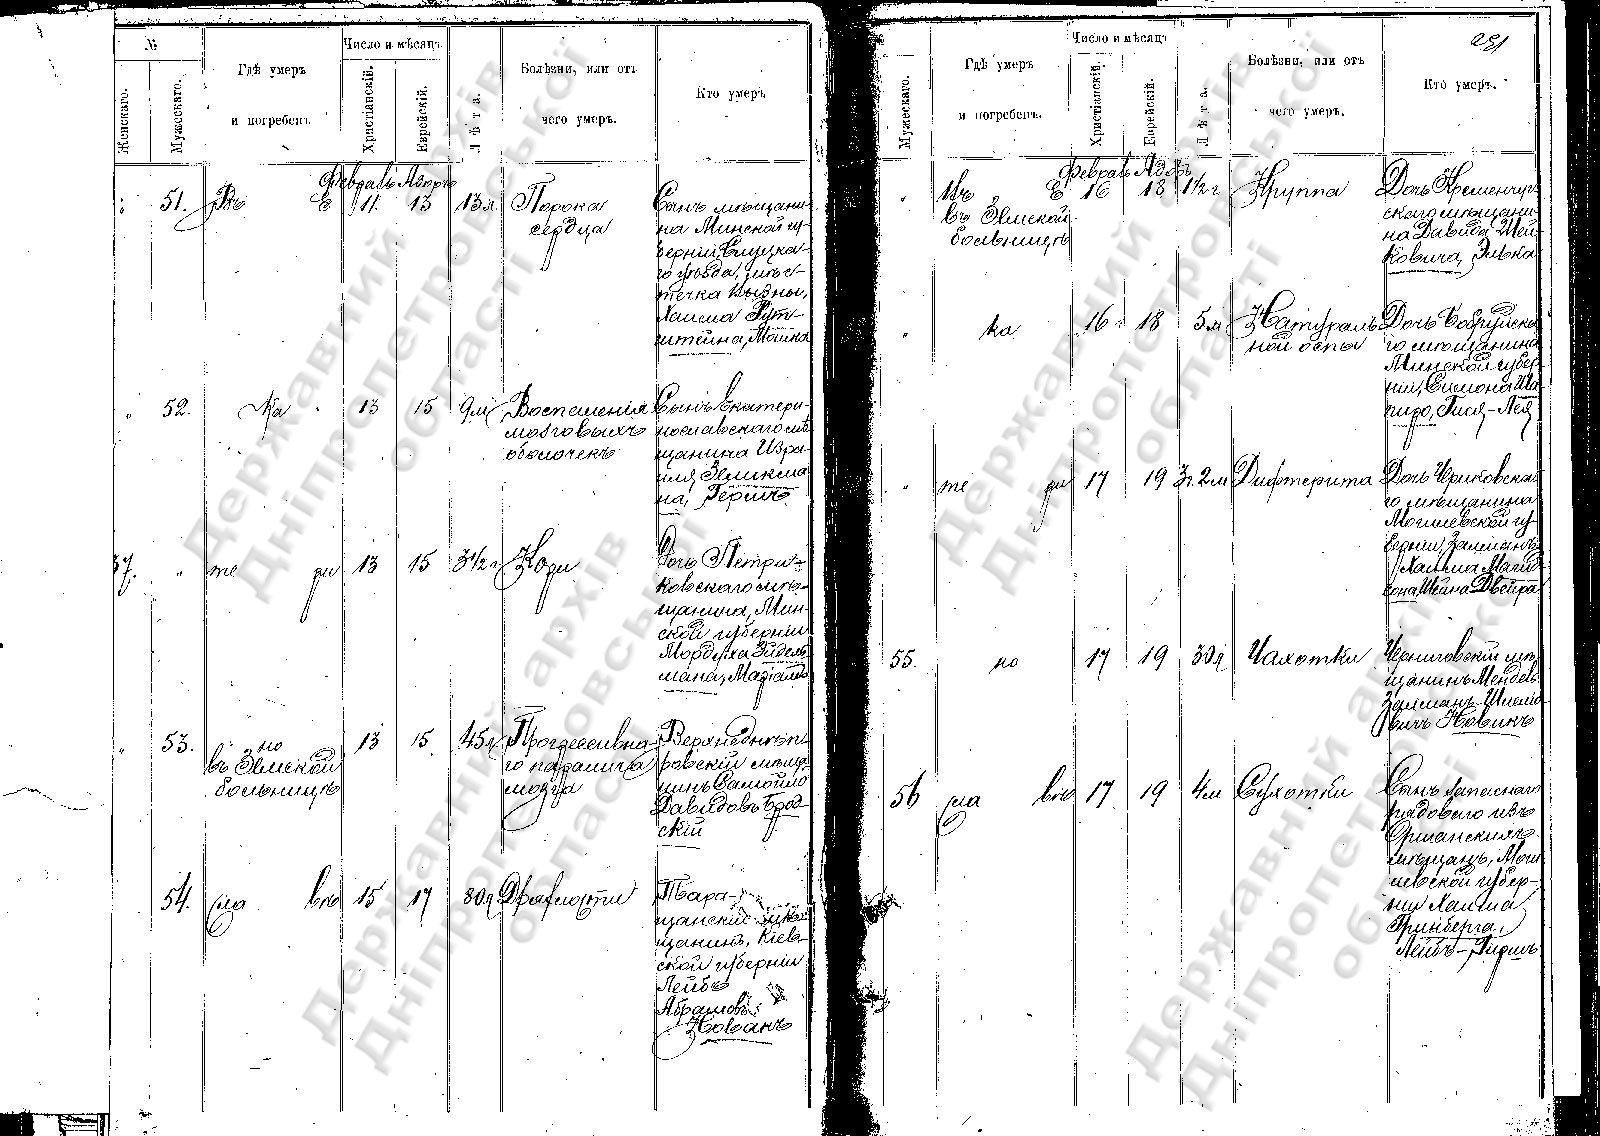 №
Женскаго.
Мужескаго.
Гдѣ умеръ
и погребенъ.
Число и мѣсяцъ
Христіанскій.
Еврейскій.
Лѣта.
Болѣзни, или отъ
чего умеръ.
Кто умеръ
Февраль Адоръ
51.
Въ Е
11
13
13 л
Порока
сердца
Сынъ мѣщани-
на Минской гу-
берніи, Слуцка-
го уѣзда, мѣс-
течка
Хаима Рут-
штейна, Мошка
52.
ка
13
15
9 м
Воспаленія
мозговыхъ
оболочекъ
Сынъ Екатери-
нославскаго мѣ-
щанина Изра-
иля Зеликма-
на, Гершъ
37.
те ри
13
15
3½ г
Кори
Дочь Петри-
ковскаго мѣ-
щанина, Мин-
ской губерніи
Мордуха Эйдель-
мана, Маріама
53.
но
въ Земской
больницѣ
13
15
45 л
Прогрессивна-
го паралича
мозга
Верхнеднѣп-
ровскій мѣща-
нинъ Самойло
Давидовъ Брод-
скій
54.
сла вѣ
15
17
80 л
Дряхлости
Тара-
щанскій мѣ-
щанинъ, Кіев-
ской губерніи
Лейбъ
Абрамовъ
Коганъ
251
Мужескаго.
Гдѣ умеръ
и погребенъ.
Число и мѣсяцъ
Христіанскій.
Еврейскій.
Лѣта.
Болѣзни, или отъ
чего умеръ.
Кто умеръ.
Февраль Адоръ
Въ Е
въ Земской
больницѣ
16
18
1½ г
Круппа
Дочь Кременчуг-
скаго мѣщани-
на Давида Шей-
ковича, Элька
ка
16
18
5 м
Натураль-
ной оспы
Дочь Бобруйска-
го мѣщанина
Минской губер-
ніи, Симона Ша-
пиро, Гися-Лея
те ри
17
19
3 г. 2 м
Дифтерита
Дочь Чериковска-
го мѣщанина
Могилевской гу-
берніи, Залманъ-
Хаима Маги-
сона, Шейна-Двейра
55.
но
17
19
30 л
Чахотки
Черниговскій мѣ-
щанинъ Мендель-
Залманъ Шмело-
вичъ Новикъ
56
сла вѣ
17
19
4 м
Сухотки
Сынъ запаснаго
рядового изъ
Оршанскихъ
мѣщанъ, Моги-
левской губер-
ніи Хаима
Гринберга,
Лейбъ-Гиршъ
Державний архів
Дніпропетровської
області